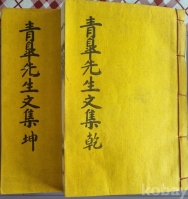 青皐先生文集乾
青皐先生文集坤
kobay